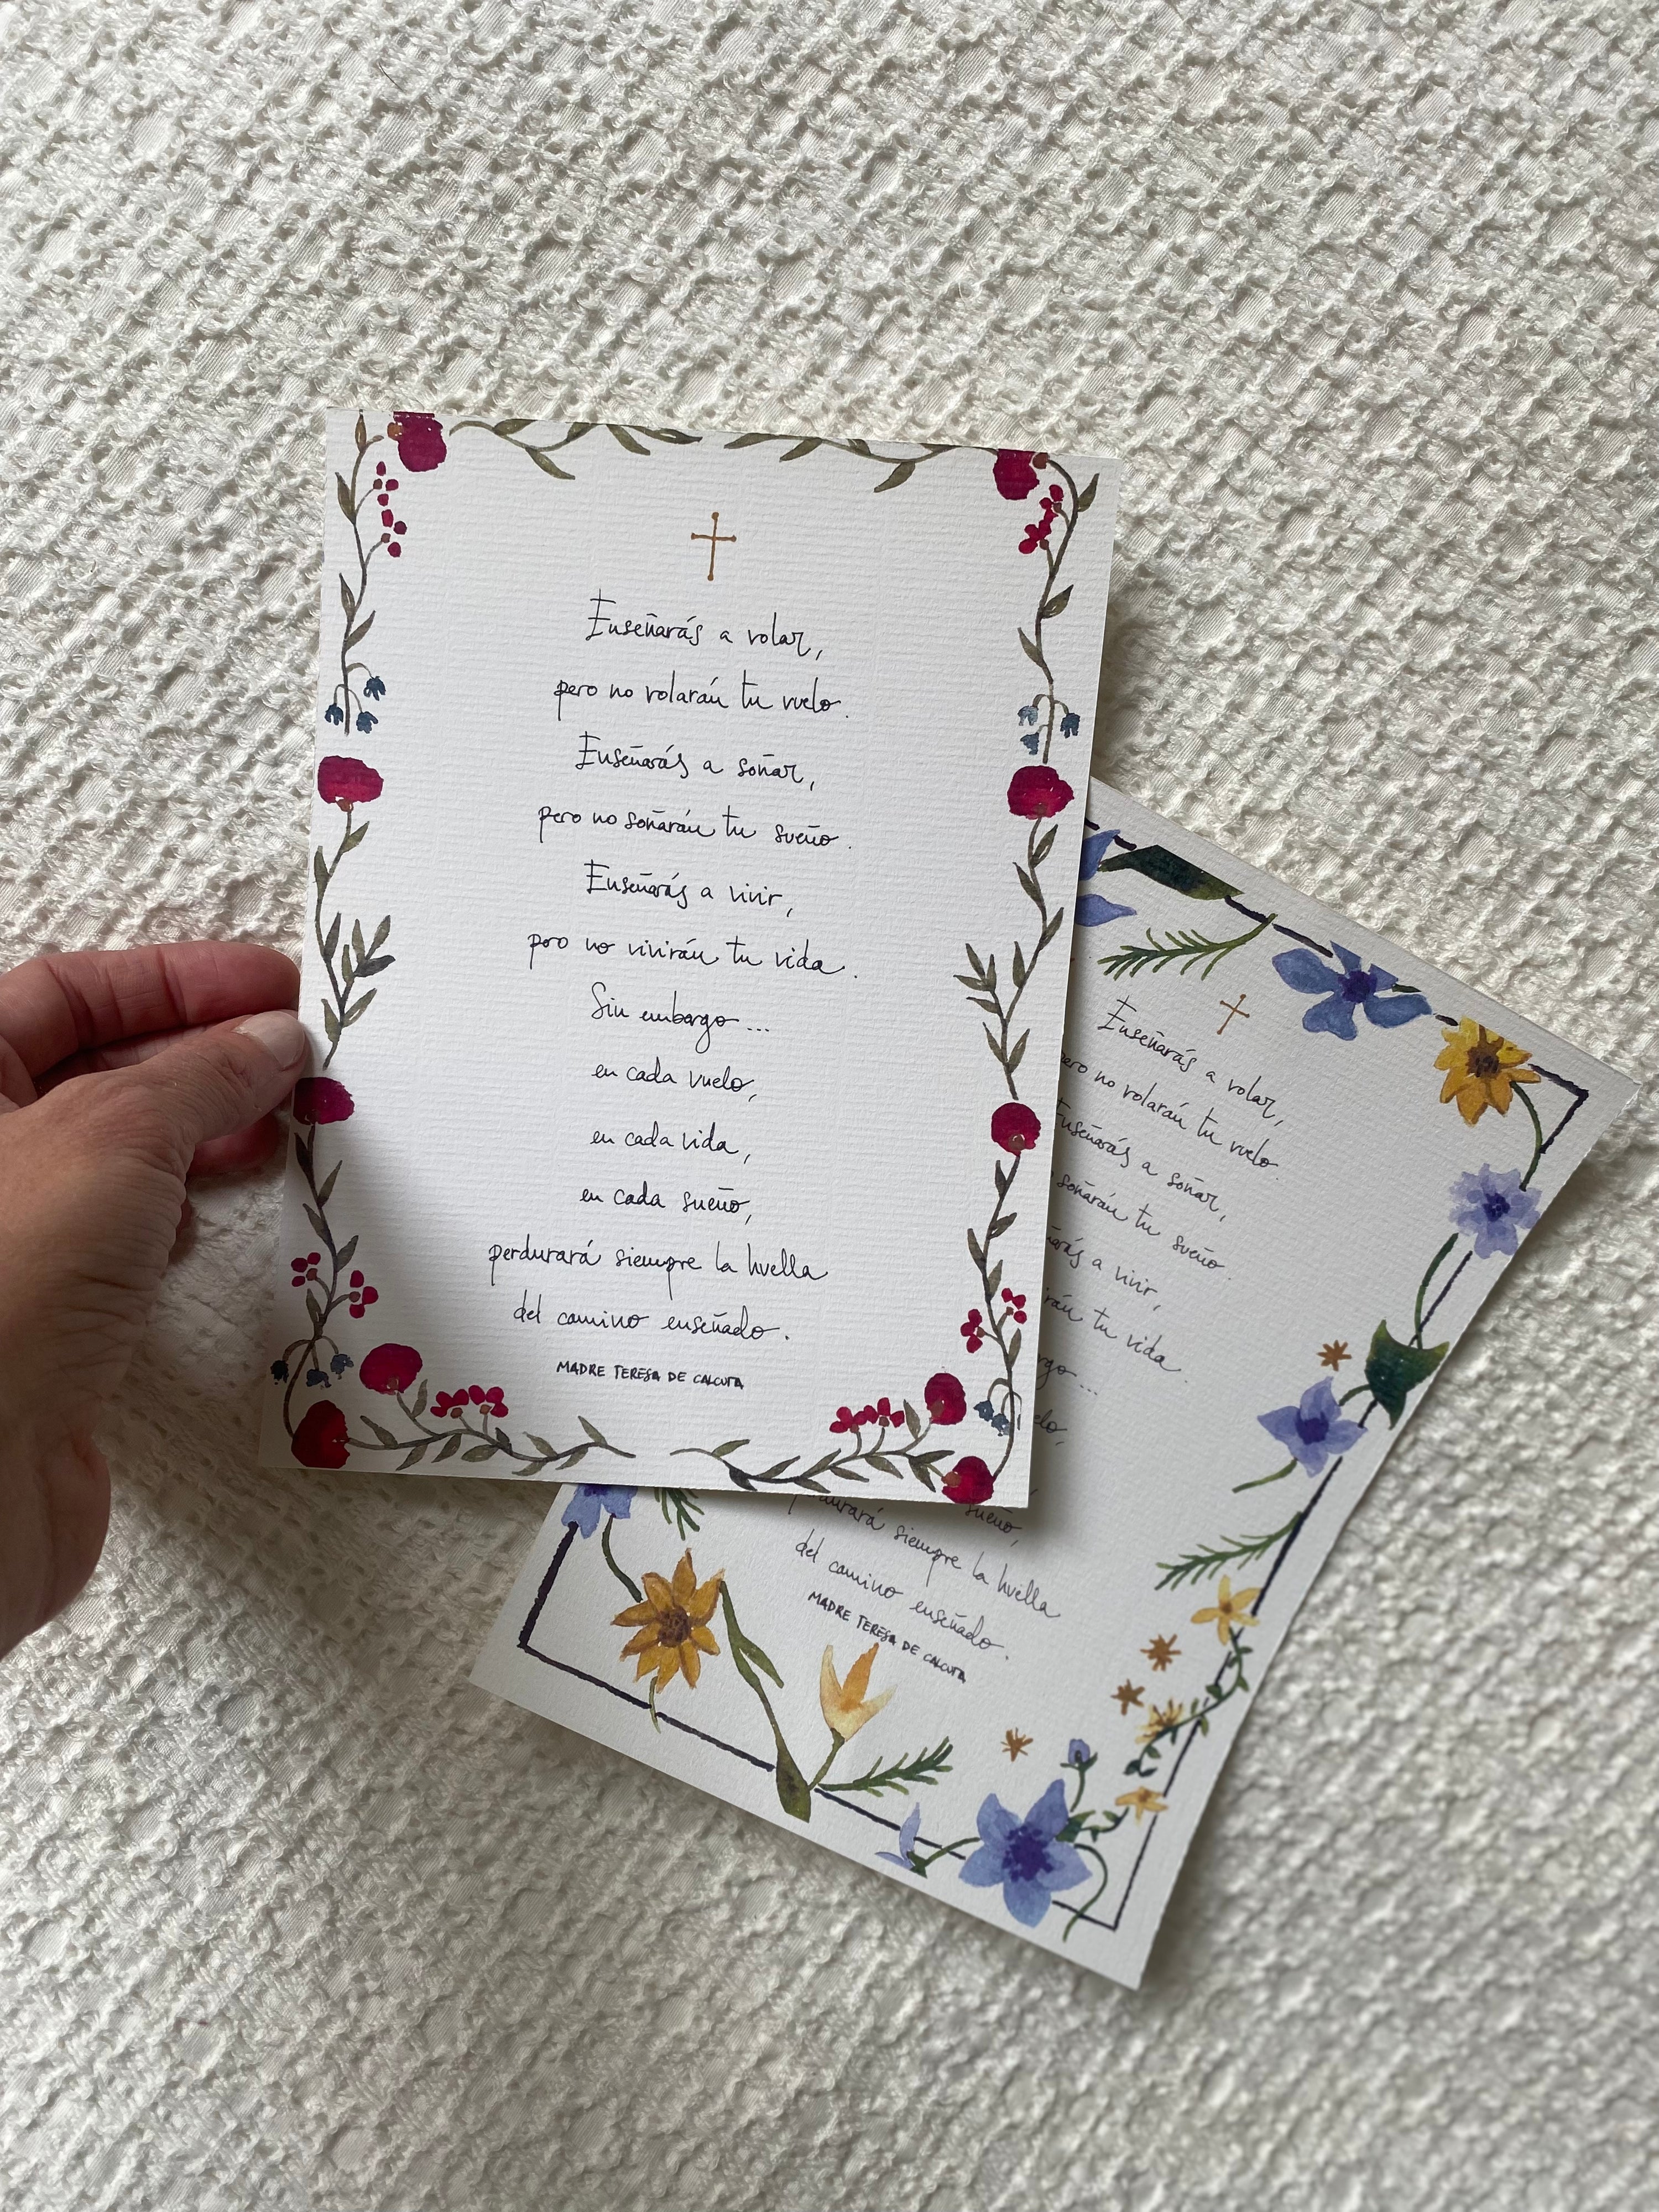 Enseñarás a volar,
pero no volarán tu vuelo.
Enseñarás a soñar,
pero no soñarán tu sueño.
Enseñarás a vivir,
pero no vivirán tu vida.
Sin embargo...
en cada vuelo,
en cada vida,
en cada sueño,
perdurará siempre la huella
del camino enseñado.
MADRE TERESA DE CALCUTA
Enseñarás a volar,
pero no volarán tu vuelo
Enseñarás a soñar,
soñarán tu sueño.
a vivir,
tu vida.
sueño,
perdurará siempre la huella
del camino enseñado.
MADRE TERESA DE CALCUTA